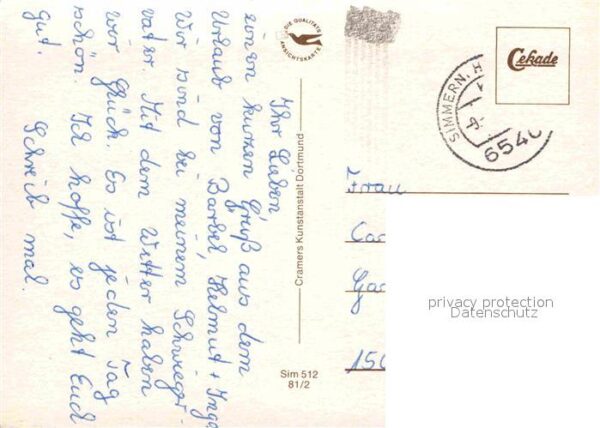 Ihr Lieben
einen kurzen Gruß aus dem
Urlaub von Bärbel, Helmut + Inge
Wir sind bei meinem Schwieger-
vater. Mit dem Wetter haben
wir Glück. Es ist jeden Tag
schön. Ich hoffe, es geht Euch
gut.
Schreib mal.
DIE QUALITÄTS
ANSICHTSKARTE
Cramers Kunstanstalt Dortmund
Sim 512
81/2
Cekade
SIMMERN, H
6540
Frau
Ca
Ga
150
privacy protection
Datenschutz